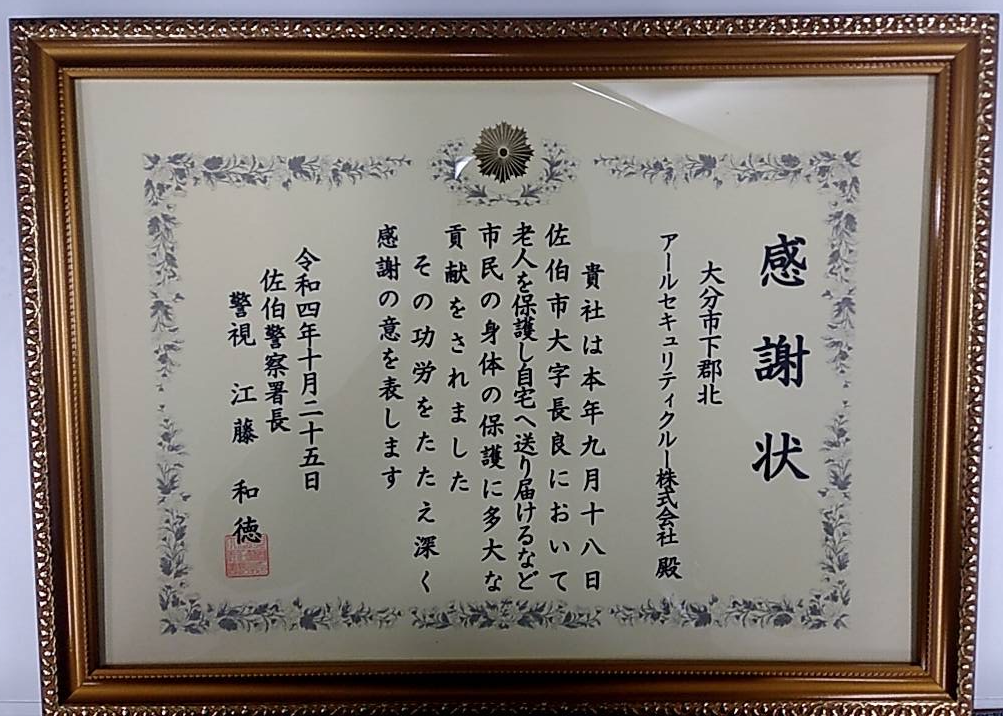 感謝状
大分市下郡北
アールセキュリティクルー株式会社 殿
貴社は本年九月十八日
佐伯市大字長良において
老人を保護し自宅へ送り届けるなど
市民の身体の保護に多大な
貢献をされました
その功労をたたえ深く
感謝の意を表します
令和四年十月二十五日
佐伯警察署長
警視 江藤 和徳